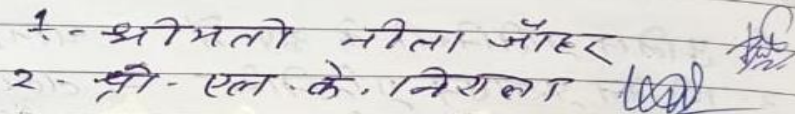 1.- श्रीमती नीता जौहर
2 - श्री. एल. के. निराला